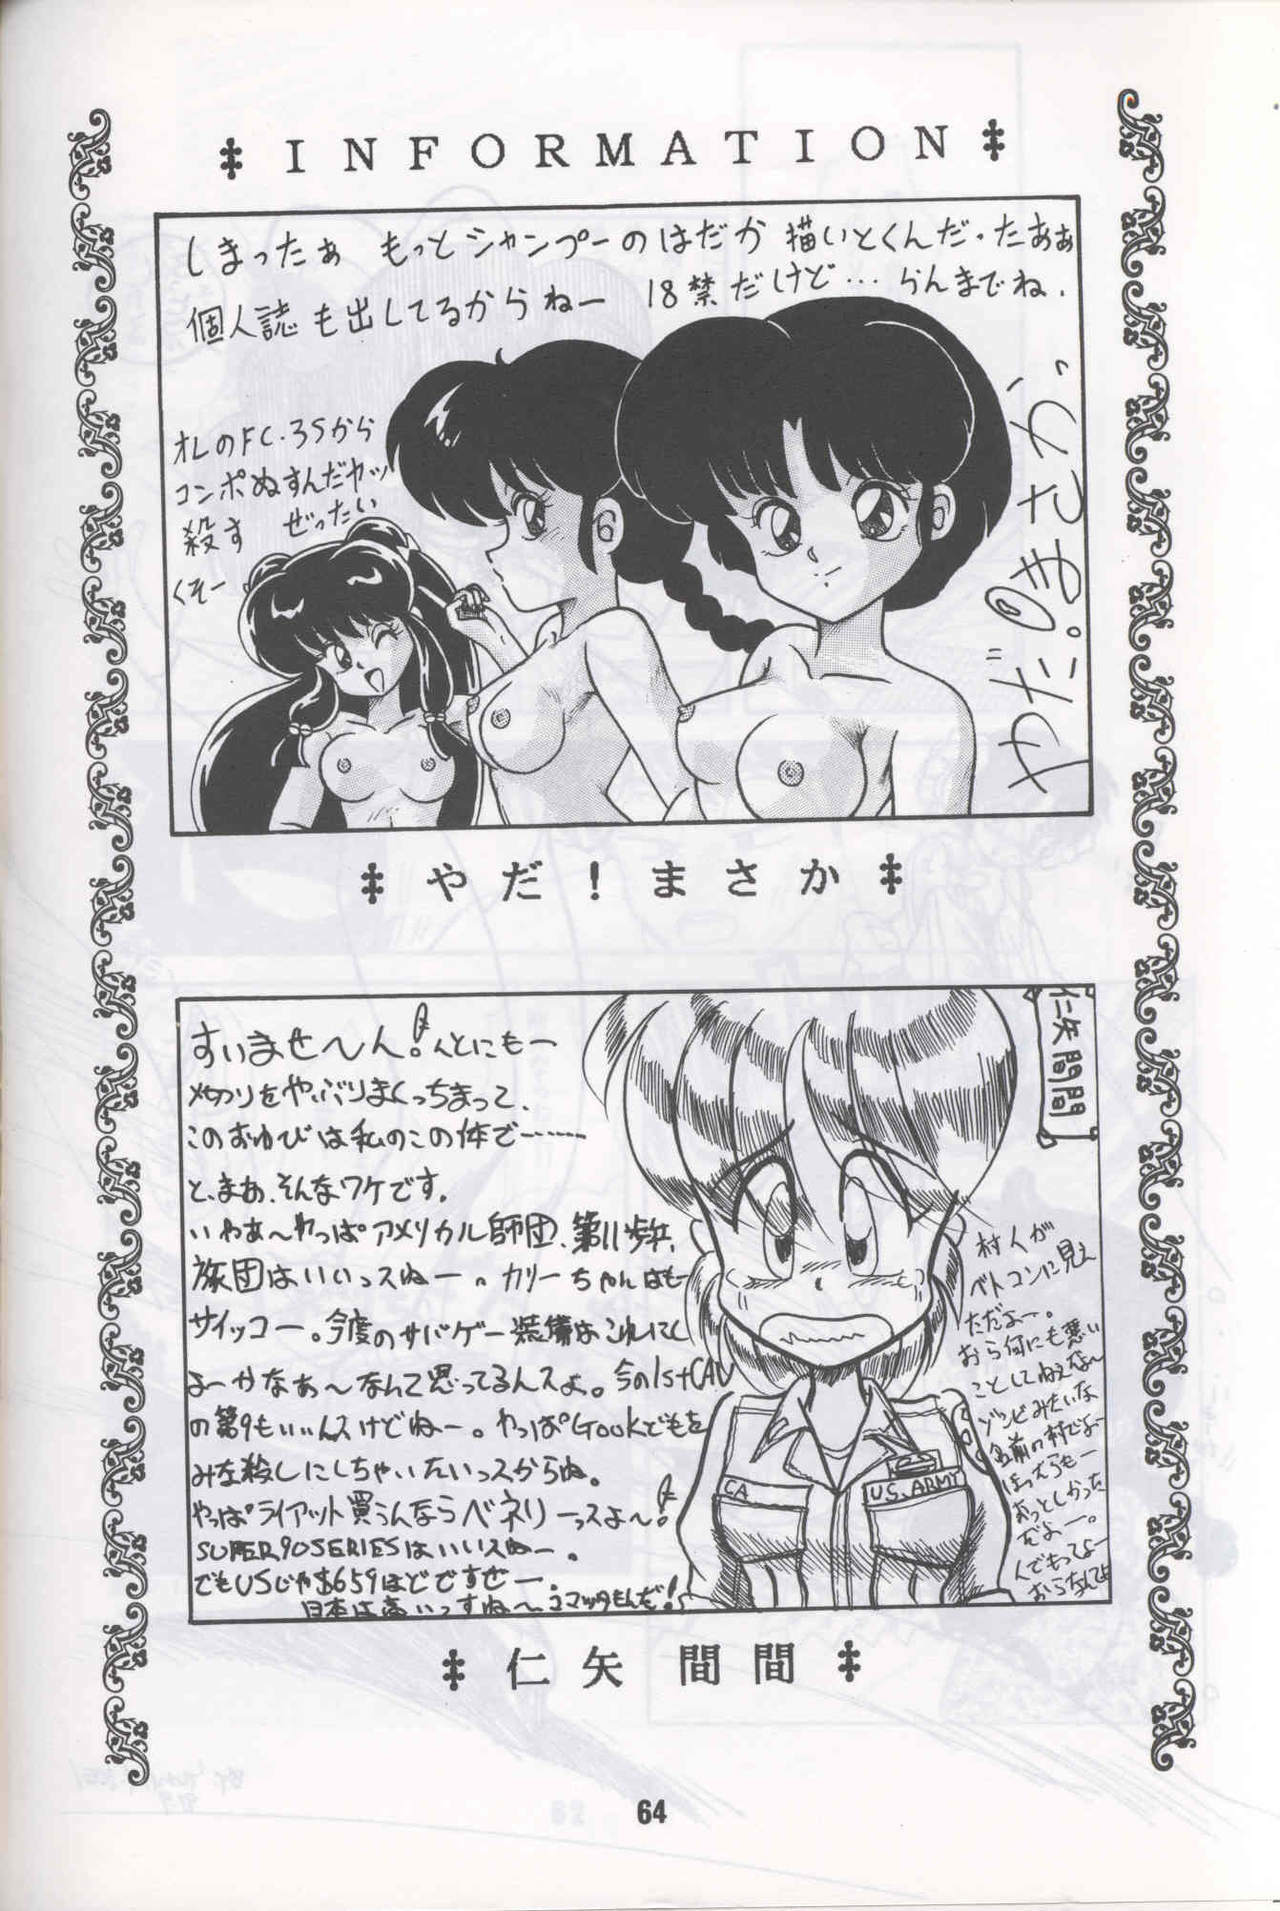 INFORMATION
しまったぁ もっとシャンプーのはだか 描いとくんだ・たぁぁ
個人誌も出してるからねー 18禁だけど…らんまでね.
オレのFC.3Sから
コンポぬすんだヤツ
殺す ぜったい
くそー
やだ!まさか
すいませ〜ん!んとにもー
〆切りをやぶりまくっちまって、
このおゆびは私のこの体で……
と、まあ、そんなワケです。
いわぁ〜やっぱアメリカル師団、第11歩兵
旅団はいいっスねー。カリーちゃんはもー
サイッコー。今度のサバゲー装備はこれにし
よーかなぁ〜なんて思ってるんスよ。今の1stCAV
の第9もいいんスけどねー。やっぱGookどもを
みな殺しにしちゃいたいっスからね。
やっぱライアット買うんならベネリーっスよ〜!
SUPER90SERIESはいいスねー。
でもUSじゃ$659ほどですぜー.
日本は高いっすね〜.コマッタもんだ!
仁矢間間
村人が
ベトコンに見え
ただよー。
おら何にも悪い
ことしてねえな〜
ゾンビみたいな
名前の村でよー
ほってらもー
おっとしかった
だよー。
んでもってよー
CA
U.S.ARMY
仁矢間間
64